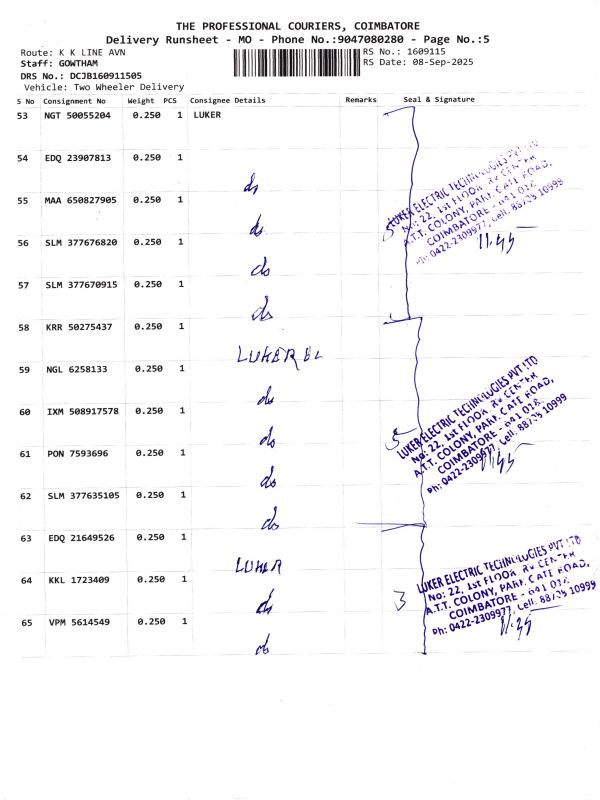 THE PROFESSIONAL COURIERS, COIMBATORE
Delivery Runsheet - MO - Phone No.:9047080280 - Page No.:5
Route: K K LINE AVN
RS No.: 1609115
Staff: GOWTHAM
RS Date: 08-Sep-2025
DRS No.: DCJB160911505
Vehicle: Two Wheeler Delivery
S No Consignment No Weight PCS Consignee Details Remarks Seal & Signature
53 NGT 50055204 0.250 1 LUKER
54 EDQ 23907813 0.250 1
do
55 MAA 650827905 0.250 1
do
56 SLM 377676820 0.250 1
do
57 SLM 377670915 0.250 1
do
5
LUKER ELECTRIC TECHNOLOGIES PVT LTD
No: 22, 1st FLOOR, RV CENTER
A.T.T. COLONY, PARK GATE ROAD,
COIMBATORE - 641 018.
Ph: 0422-2309977, Cell: 88703 10999
11.45
58 KRR 50275437 0.250 1
LUKER EL
59 NGL 6258133 0.250 1
do
60 IXM 508917578 0.250 1
do
61 PON 7593696 0.250 1
do
62 SLM 377635105 0.250 1
do
5
LUKER ELECTRIC TECHNOLOGIES PVT LTD
No: 22, 1st FLOOR, RV CENTER
A.T.T. COLONY, PARK GATE ROAD,
COIMBATORE - 641 018.
Ph: 0422-2309977, Cell: 88703 10999
11.45
63 EDQ 21649526 0.250 1
LUKER
64 KKL 1723409 0.250 1
do
65 VPM 5614549 0.250 1
do
3
LUKER ELECTRIC TECHNOLOGIES PVT LTD
No: 22, 1st FLOOR, RV CENTER
A.T.T. COLONY, PARK GATE ROAD,
COIMBATORE - 641 018.
Ph: 0422-2309977, Cell: 88703 10999
11.45